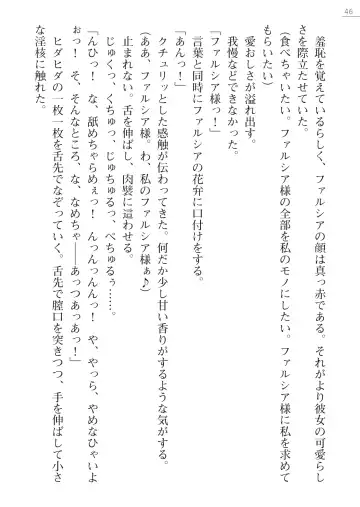 46
羞恥を覚えているらしく、ファルシアの顔は真っ赤である。それがより彼女の可愛らし
さを際立たせていた。
(食べちゃいたい。ファルシア様の全部を私のモノにしたい。ファルシア様に私を求めて
もらいたい)
愛おしさが溢れ出す。
我慢などできなかった。
「ファルシア様っ!」
言葉と同時にファルシアの花弁に口付けをする。
「あんっ!」
クチュリッとした感触が伝わってきた。何だか少し甘い香りがするような気がする。
(ああ、ファルシア様。わ、私のファルシア様ぁ♪)
止まれない。舌を伸ばし、肉襞に這わせる。
じゅくっ、くちゅっ、じゅちゅるっ、べちゅるぅ……。
「んひっ! な、舐めちゃらめぇっ! んっんっんんっ! や、やっら、やめなひゃいよ
おっ! そ、そんなところ、な、なめちゃ――あっつあっあっ!」
ヒダヒダの一枚一枚を舌先でなぞっていく。舌先で膣口を突きつつ、手を伸ばして小さ
な淫核に触れた。